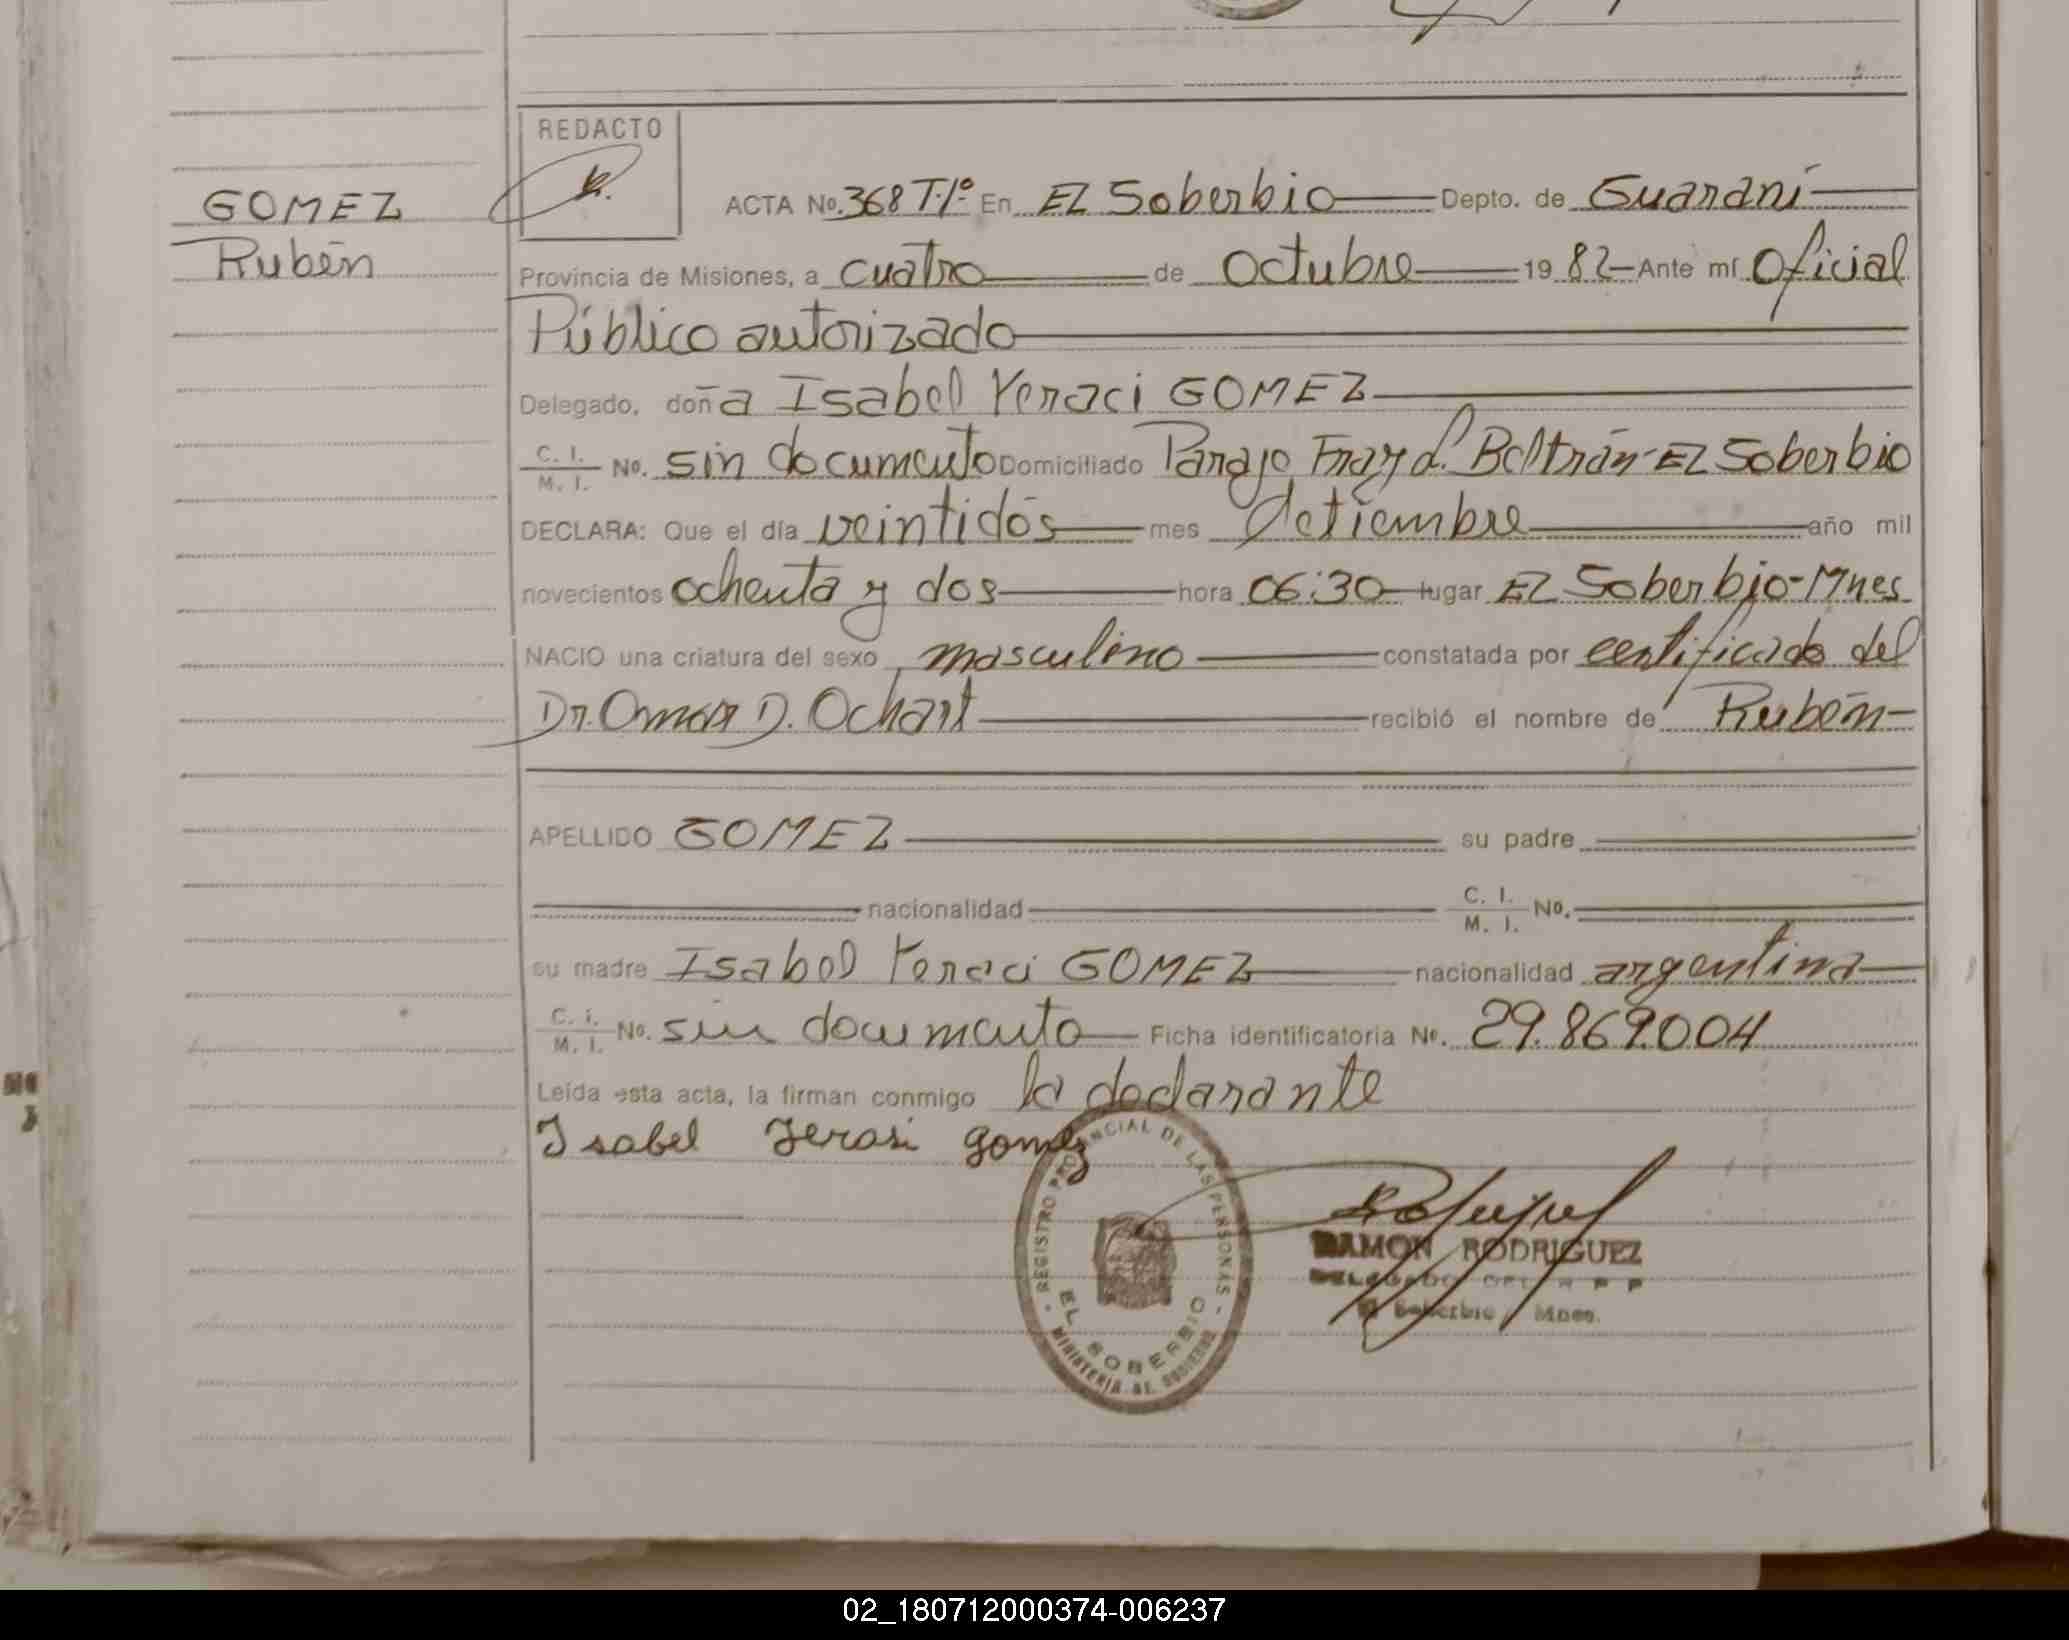 REDACTO
GOMEZ
Rubén
ACTA No. 368 T.1º En El Soberbio Depto. de Guaraní
Provincia de Misiones, a cuatro de Octubre 19 82 Ante mí Oficial
Público autorizado
Delegado, doña Isabel Yeraci GOMEZ
C. I. / M. I. No. sin documento Domiciliado Paraje Fray L. Beltrán - El Soberbio
DECLARA: Que el día veintidós mes Setiembre año mil
novecientos ochenta y dos hora 06:30 lugar El Soberbio - Mnes
NACIO una criatura del sexo masculino constatada por certificado del
Dr. Omar D. Ochart recibió el nombre de Rubén
APELLIDO GOMEZ su padre
nacionalidad C. I. / M. I. No.
su madre Isabel Yeraci GOMEZ nacionalidad argentina
C. I. / M. I. No. sin documento Ficha identificatoria No. 29.869.004
Leída esta acta, la firman conmigo la declarante
Isabel Jerasi gomez
REGISTRO PROVINCIAL DE LAS PERSONAS
EL SOBERBIO
MINISTERIO DE GOBIERNO
RAMON RODRIGUEZ
DELEGADO DEL R P P
El Soberbio Mnes.
02_180712000374-006237